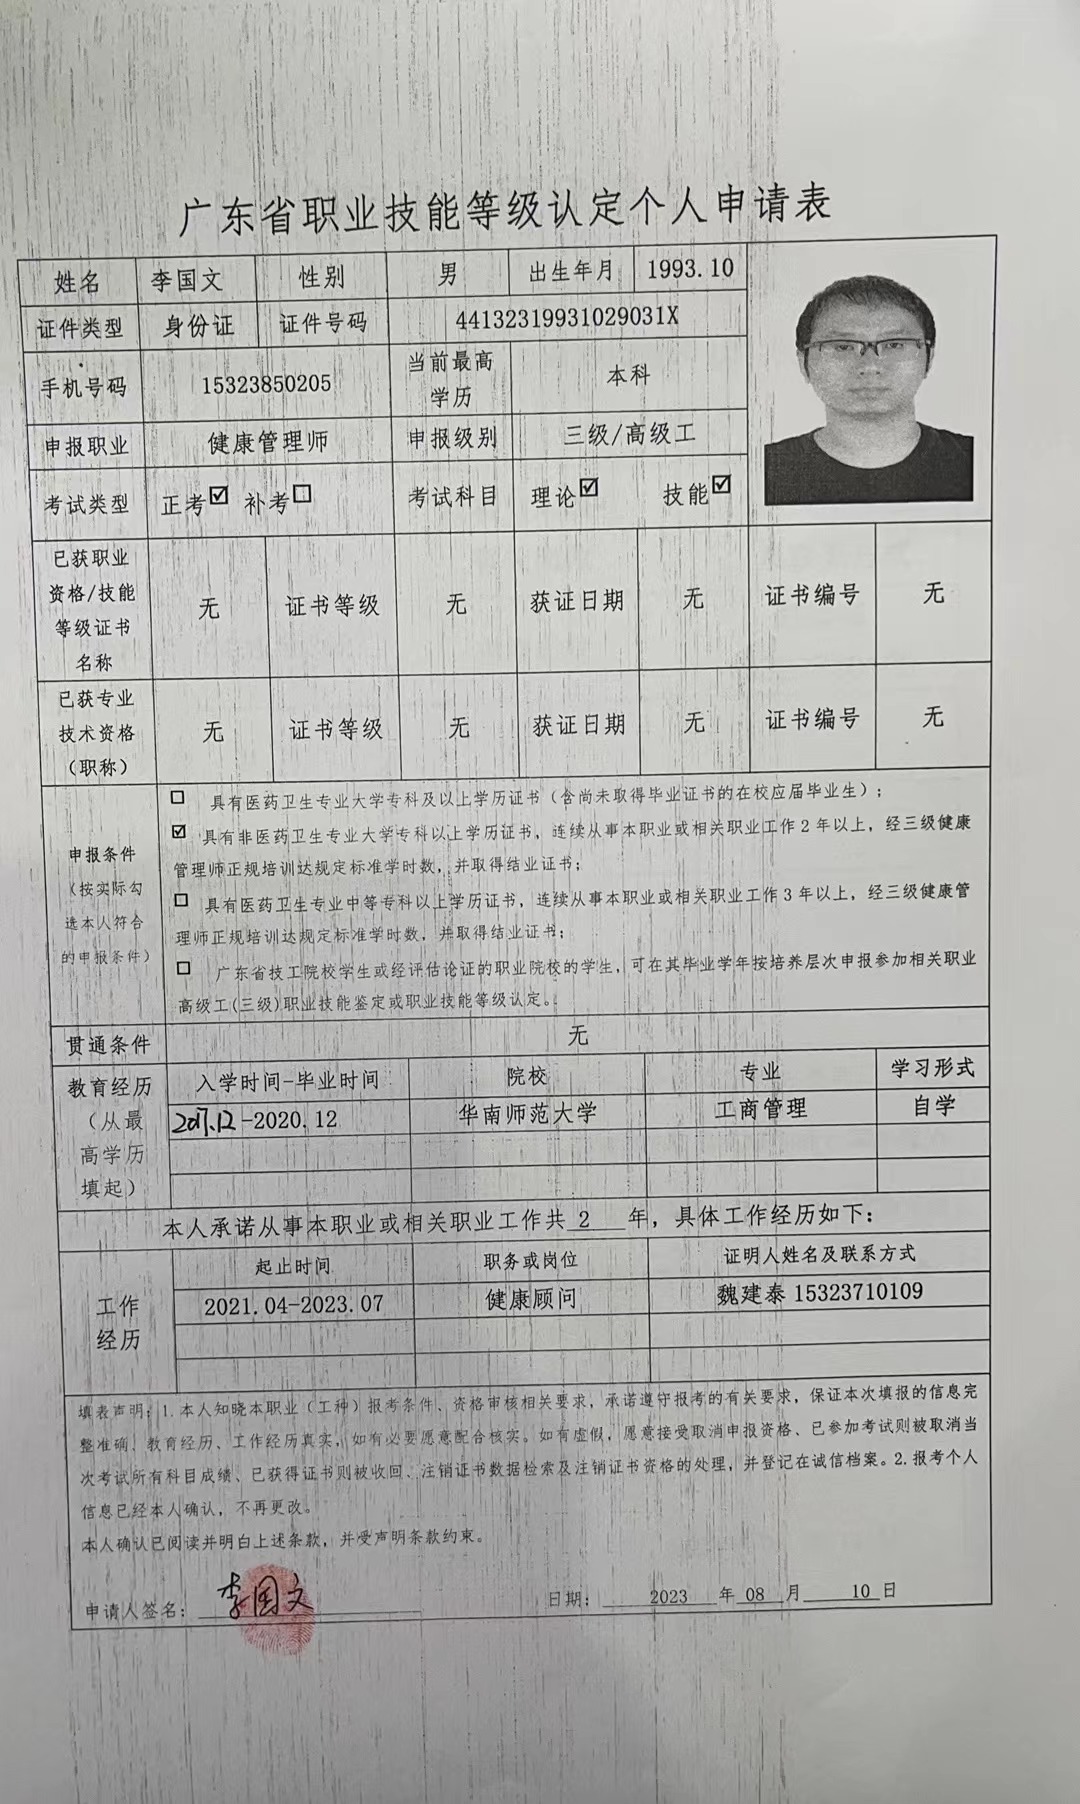 广东省职业技能等级认定个人申请表
姓名 李国文 性别 男 出生年月 1993.10
证件类型 身份证 证件号码 44132319931029031X
手机号码 15323850205 当前最高学历 本科
申报职业 健康管理师 申报级别 三级/高级工
考试类型 正考☑ 补考☐ 考试科目 理论☑ 技能☑
已获职业资格/技能等级证书名称 无 证书等级 无 获证日期 无 证书编号 无
已获专业技术资格（职称） 无 证书等级 无 获证日期 无 证书编号 无
申报条件（按实际勾选本人符合的申报条件）
☐ 具有医药卫生专业大学专科及以上学历证书（含尚未取得毕业证书的在校应届毕业生）；
☑ 具有非医药卫生专业大学专科以上学历证书，连续从事本职业或相关职业工作2年以上，经三级健康
管理师正规培训达规定标准学时数，并取得结业证书；
☐ 具有医药卫生专业中等专科以上学历证书，连续从事本职业或相关职业工作3年以上，经三级健康管
理师正规培训达规定标准学时数，并取得结业证书；
☐ 广东省技工院校学生或经评估论证的职业院校的学生，可在其毕业学年按培养层次申报参加相关职业
高级工(三级)职业技能鉴定或职业技能等级认定。
贯通条件 无
教育经历（从最高学历填起） 入学时间-毕业时间 院校 专业 学习形式
2017.12-2020.12 华南师范大学 工商管理 自学
本人承诺从事本职业或相关职业工作共 2 年，具体工作经历如下：
工作经历 起止时间 职务或岗位 证明人姓名及联系方式
2021.04-2023.07 健康顾问 魏建泰 15323710109
填表声明：1.本人知晓本职业（工种）报考条件、资格审核相关要求，承诺遵守报考的有关要求，保证本次填报的信息完
整准确、教育经历、工作经历真实，如有必要愿意配合核实。如有虚假，愿意接受取消申报资格、已参加考试则被取消当
次考试所有科目成绩、已获得证书则被收回、注销证书数据检索及注销证书资格的处理，并登记在诚信档案。2.报考个人
信息已经本人确认，不再更改。
本人确认已阅读并明白上述条款，并受声明条款约束。
申请人签名： 李国文 日期： 2023 年 08 月 10 日